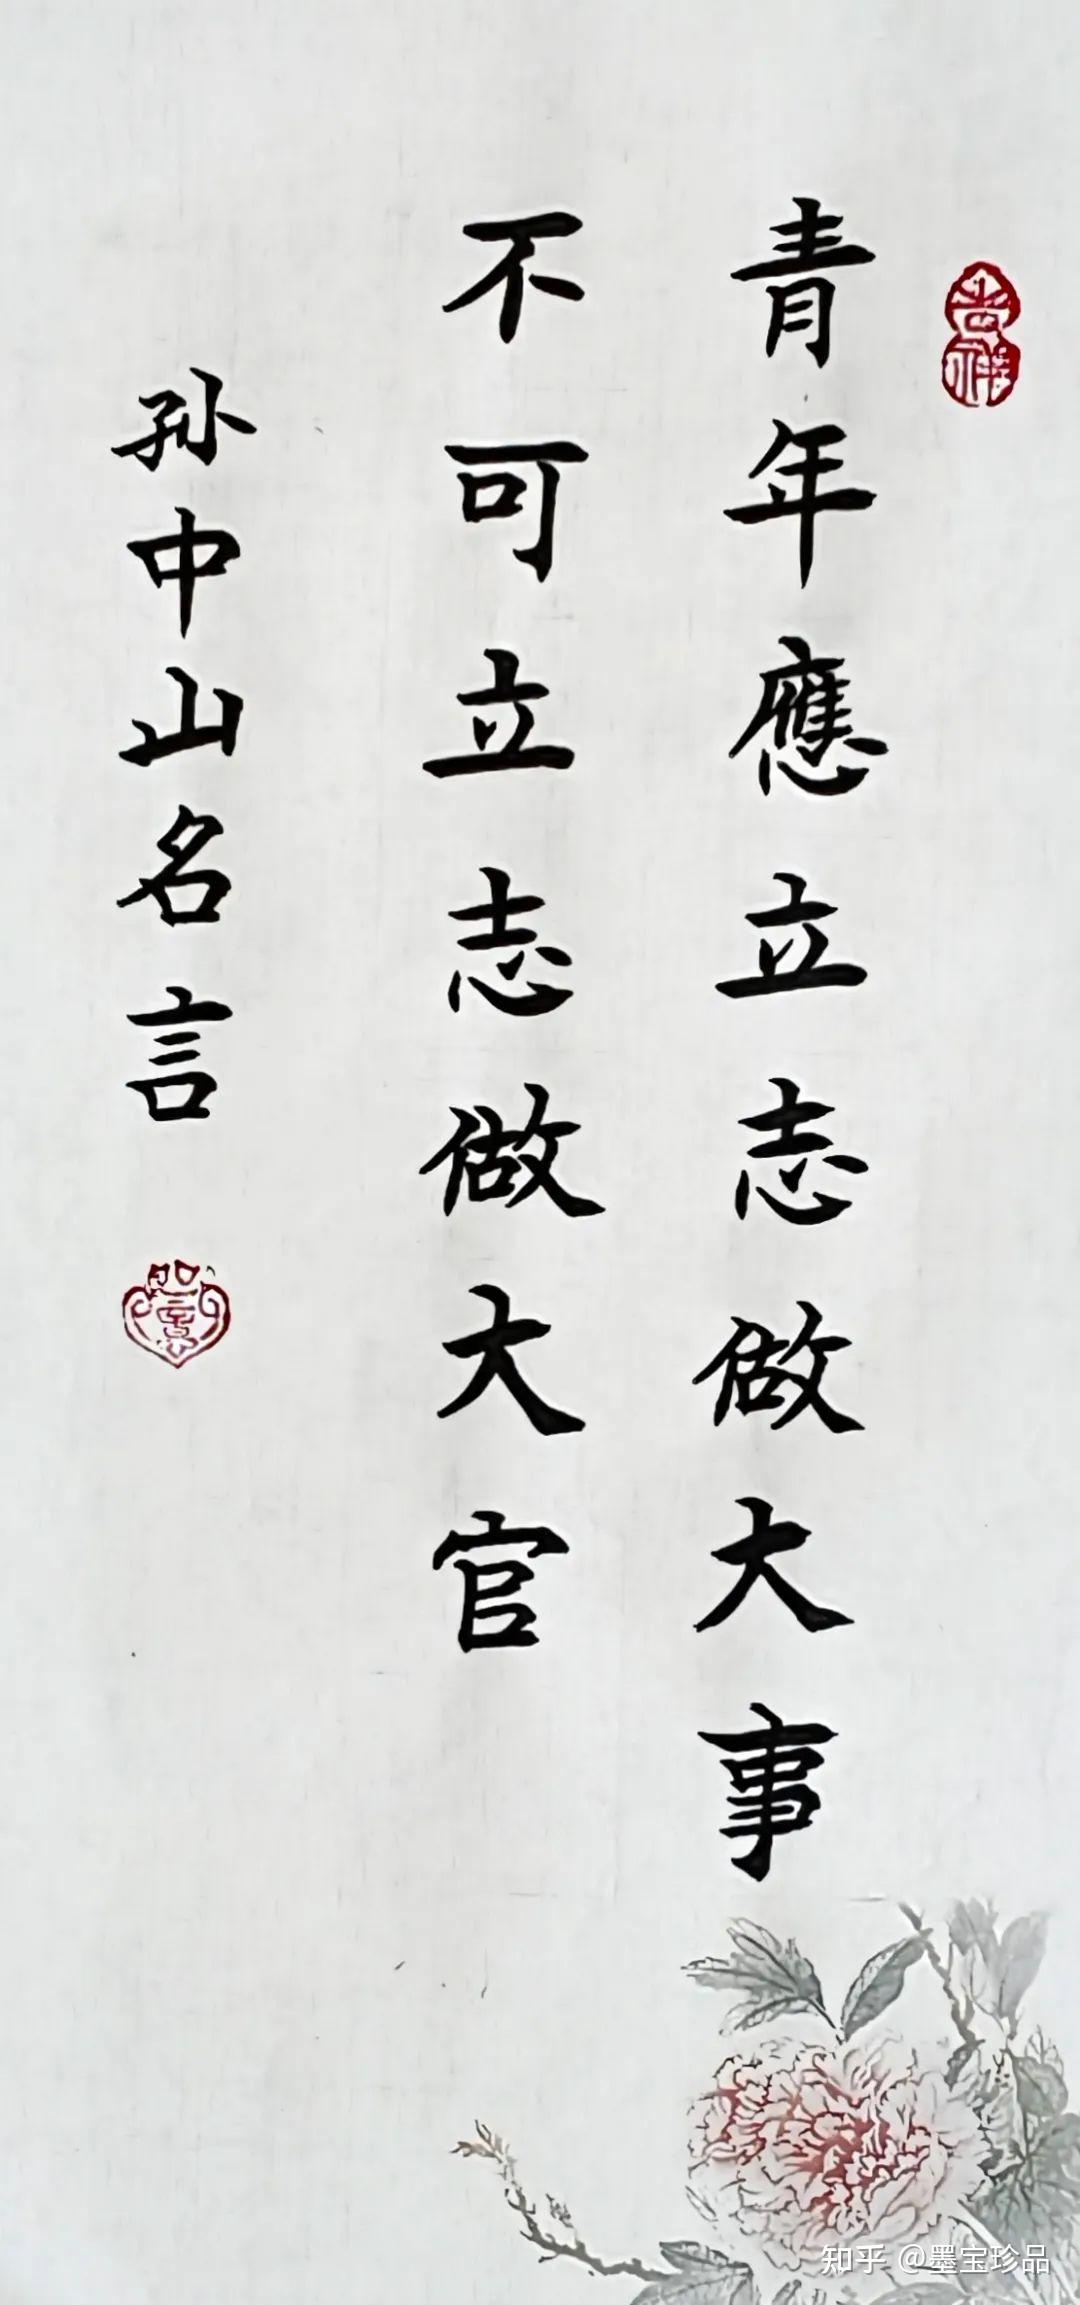 青年應立志做大事
不可立志做大官
孙中山名言
吉祥
知乎 @墨宝珍品